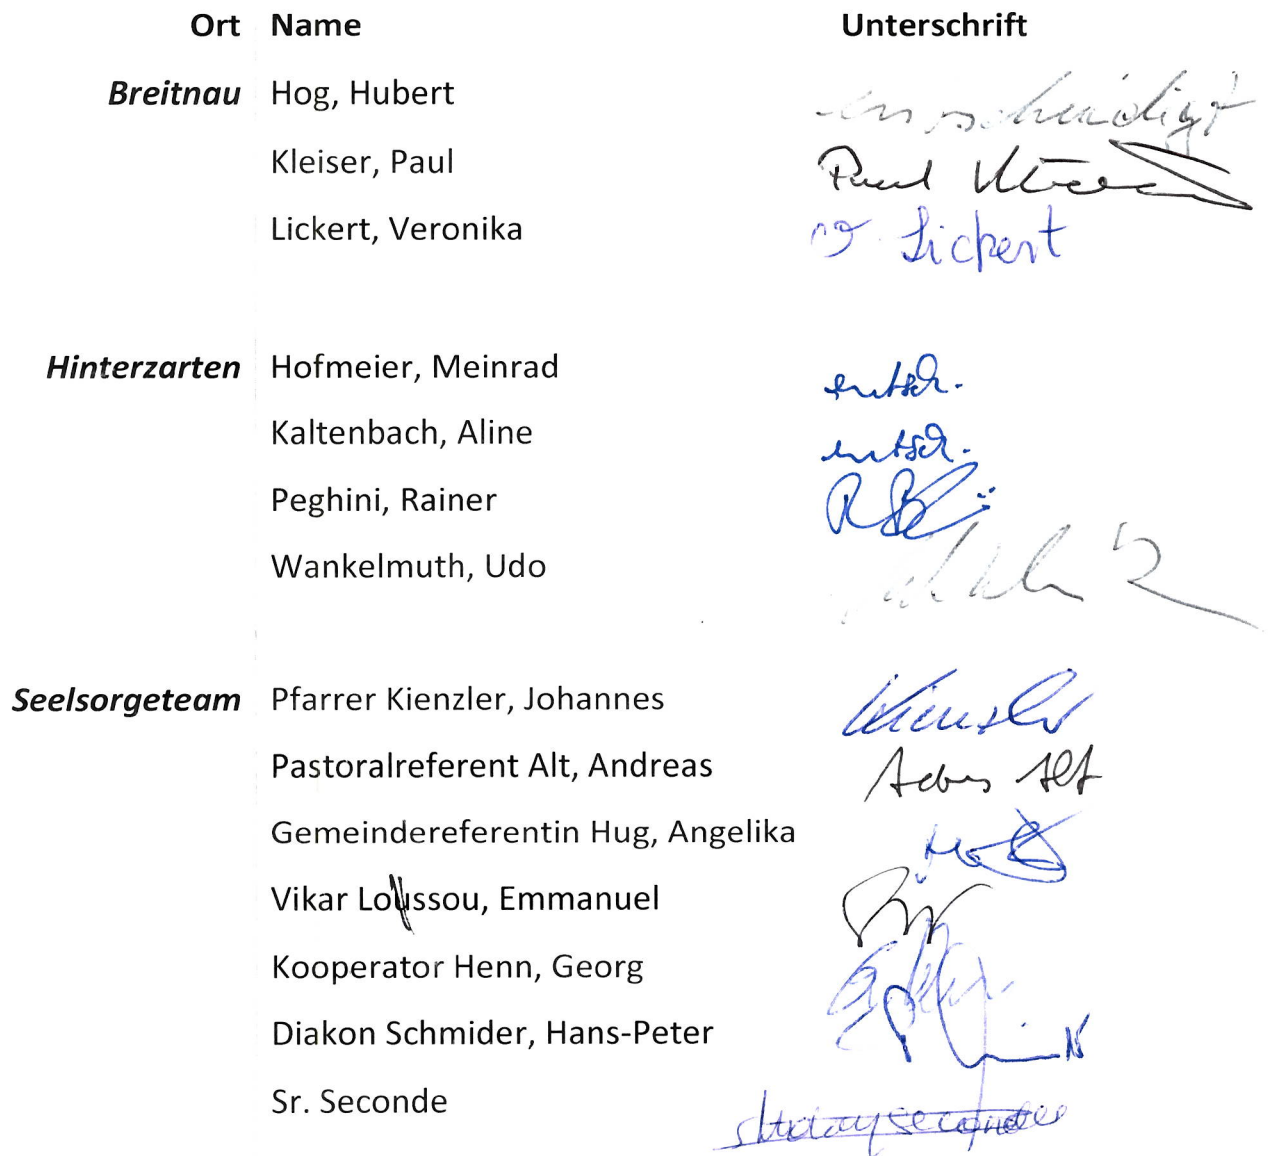 Ort Name Unterschrift
Breitnau Hog, Hubert
Kleiser, Paul Paul
Lickert, Veronika V. Lickert
Hinterzarten Hofmeier, Meinrad entsch.
Kaltenbach, Aline entsch.
Peghini, Rainer
Wankelmuth, Udo
Seelsorgeteam Pfarrer Kienzler, Johannes Kienzler
Pastoralreferent Alt, Andreas Andreas Alt
Gemeindereferentin Hug, Angelika
Vikar Loussou, Emmanuel
Kooperator Henn, Georg
Diakon Schmider, Hans-Peter
Sr. Seconde